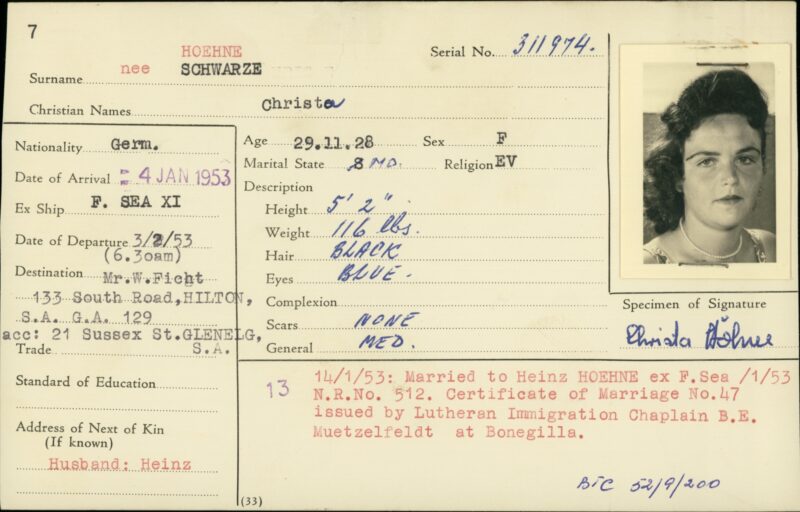 7
HOEHNE
Serial No. 311974.
Surname nee SCHWARZE
Christian Names Christa
Nationality Germ.
Date of Arrival 4 JAN 1953
Ex Ship F. SEA XI
Date of Departure 3/2/53
(6.30am)
Destination Mr.W.Ficht
133 South Road,HILTON,
S.A. G.A. 129
acc: 21 Sussex St.GLENELG,
Trade S.A.
Standard of Education
Address of Next of Kin
(If known)
Husband: Heinz
Age 29.11.28 Sex F
Marital State MD. Religion EV
Description
Height 5' 2"
Weight 116 lbs.
Hair BLACK
Eyes BLUE.
Complexion
Scars NONE
General MED.
Specimen of Signature
Christa Höhne
13
14/1/53: Married to Heinz HOEHNE ex F.Sea /1/53
N.R.No. 512. Certificate of Marriage No.47
issued by Lutheran Immigration Chaplain B.E.
Muetzelfeldt at Bonegilla.
BTC 52/9/200
(33)